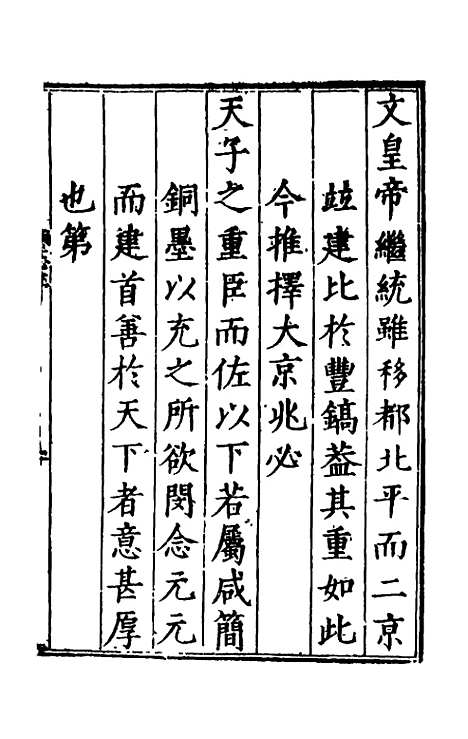 文皇帝繼統雖移都北平而二京
竝建比於豐鎬葢其重如此
今推擇大京兆必
天子之重臣而佐以下若屬咸簡
銅墨以充之所欲閔念元元
而建首善於天下者意甚厚
也第